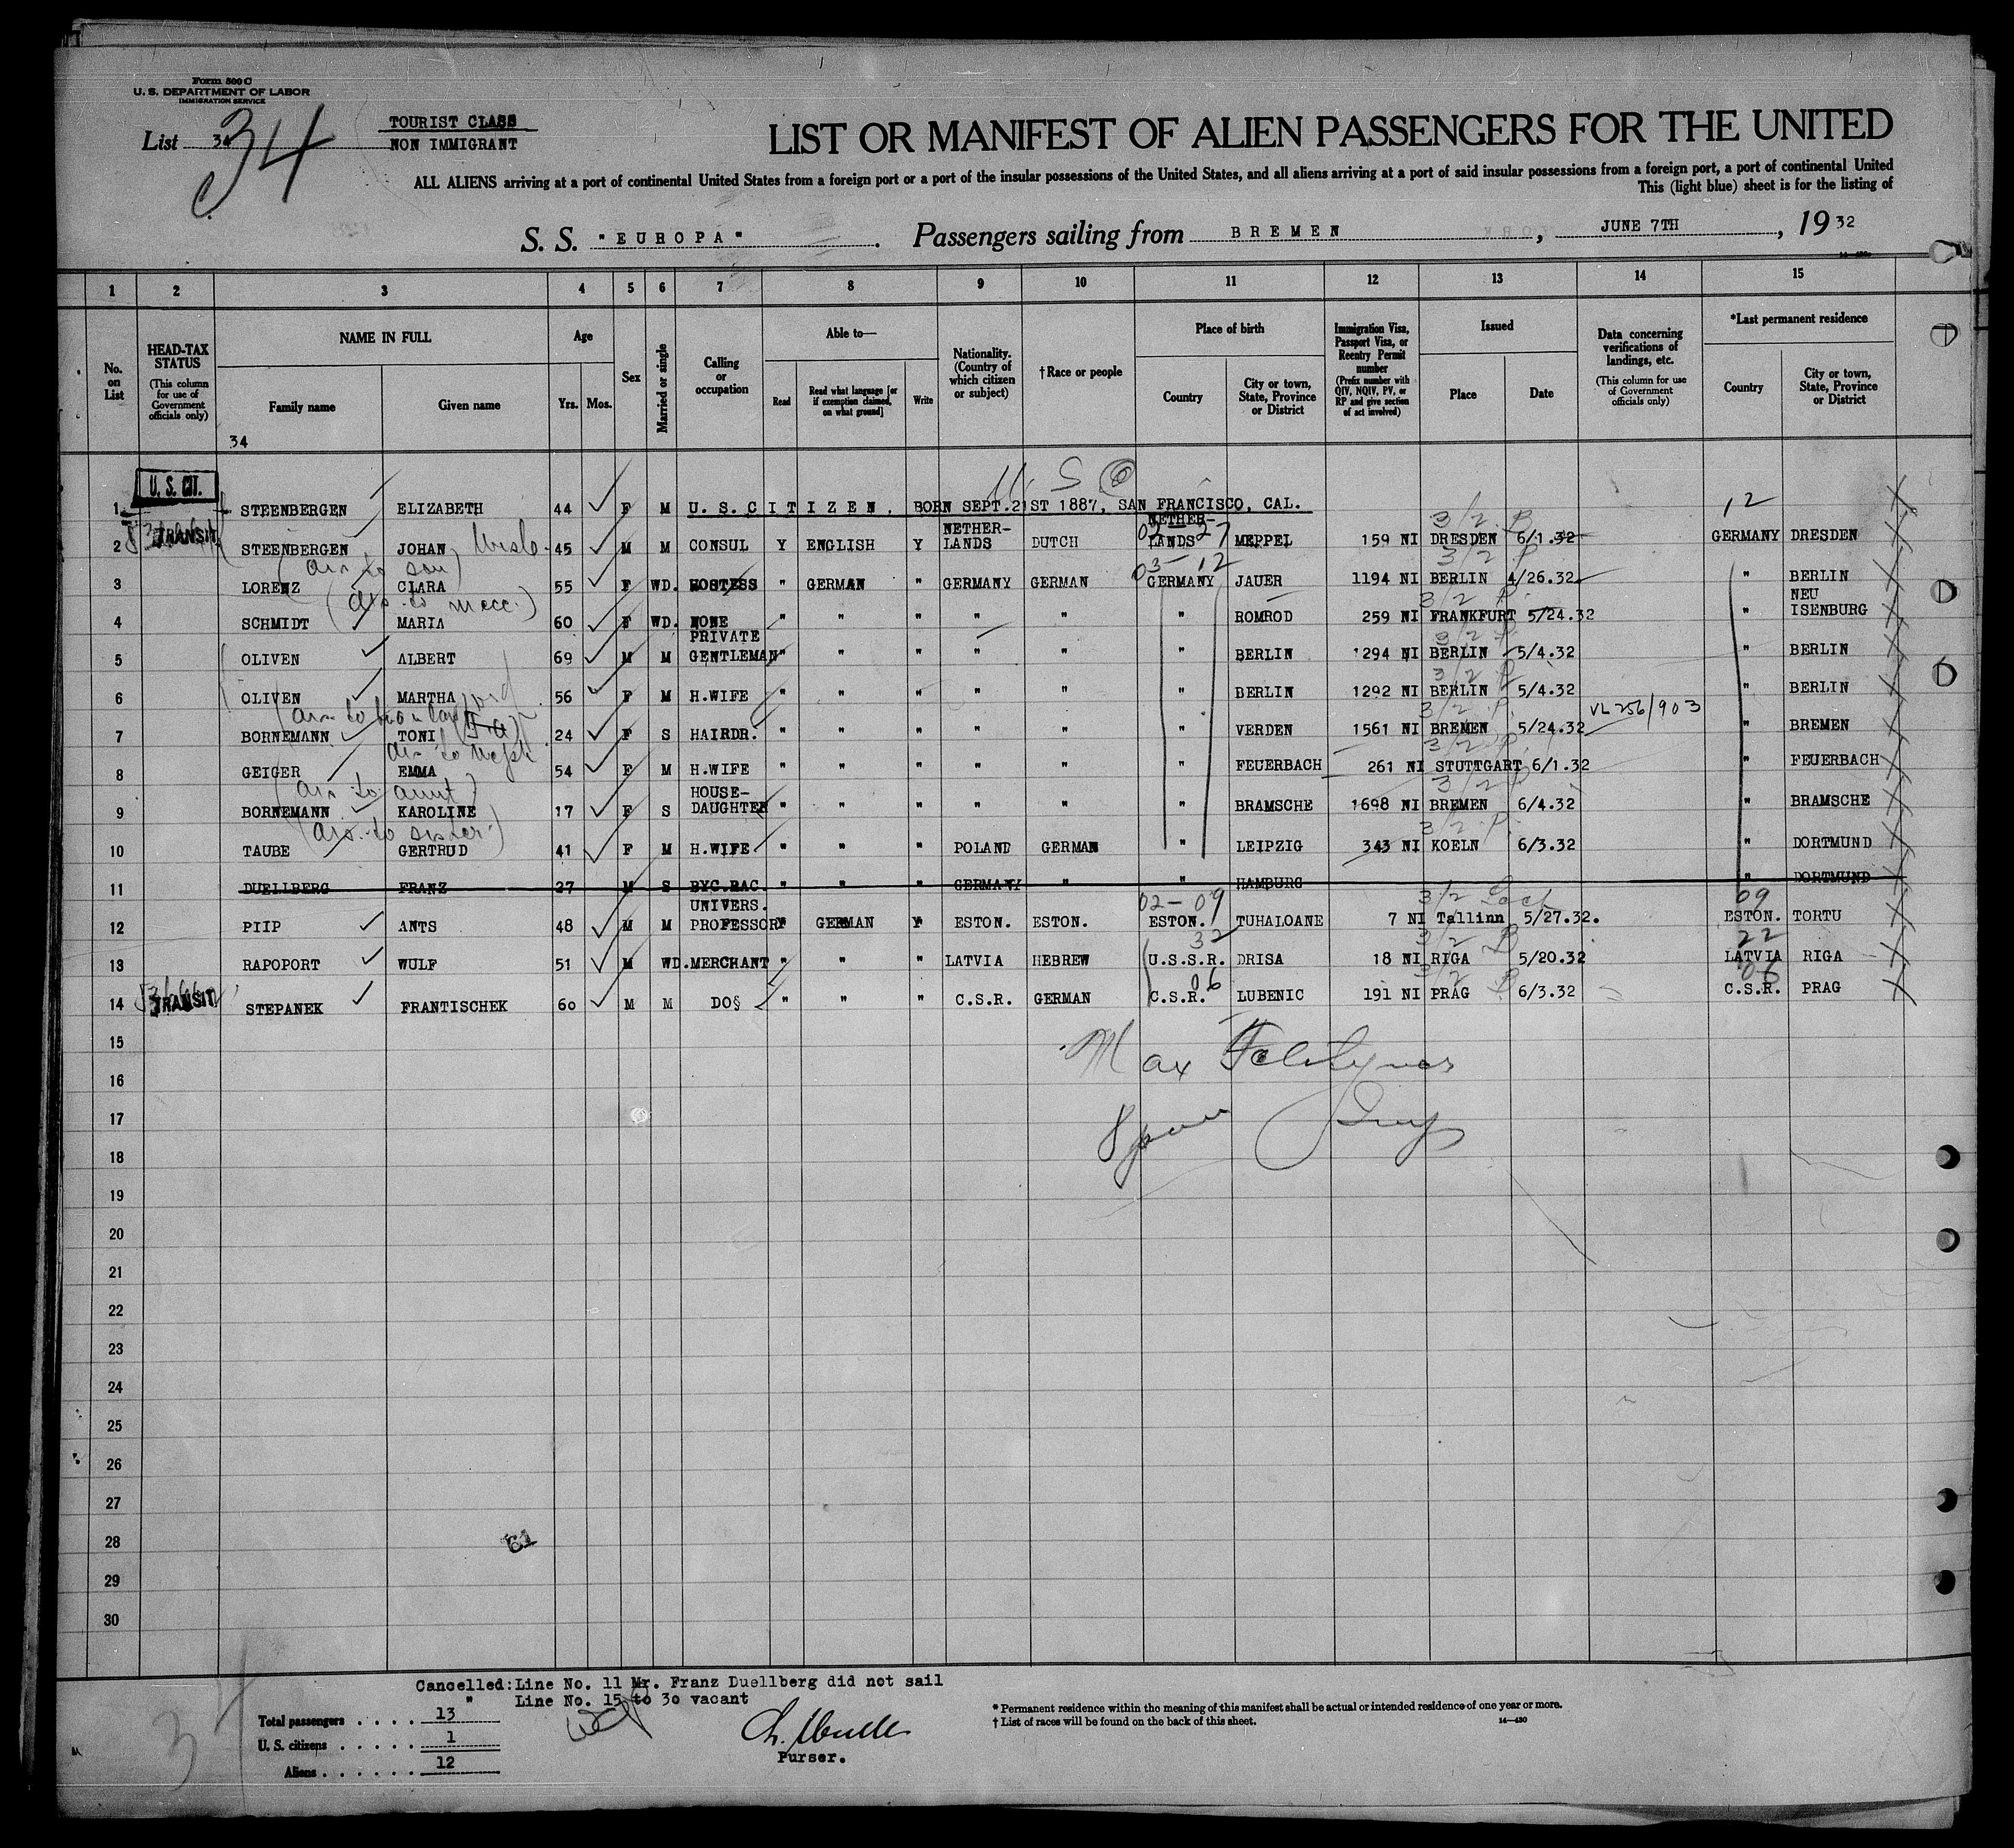 Form 500 C
U. S. DEPARTMENT OF LABOR
IMMIGRATION SERVICE
List 34
34
TOURIST CLASS
NON IMMIGRANT
LIST OR MANIFEST OF ALIEN PASSENGERS FOR THE UNITED
ALL ALIENS arriving at a port of continental United States from a foreign port or a port of the insular possessions of the United States, and all aliens arriving at a port of said insular possessions from a foreign port, a port of continental United
This (light blue) sheet is for the listing of
S. S. "EUROPA" . Passengers sailing from BREMEN , JUNE 7TH , 19 32
1 2 3 4 5 6 7 8 9 10 11 12 13 14 15
No. on List
HEAD-TAX STATUS (This column for use of Government officials only)
NAME IN FULL
Family name Given name
Age
Yrs. Mos.
Sex
Married or single
Calling or occupation
Able to—
Read
Read what language [or if exemption claimed, on what ground]
Write
Nationality. (Country of which citizen or subject)
†Race or people
Place of birth
Country
City or town, State, Province or District
Immigration Visa, Passport Visa, or Reentry Permit number (Prefix number with QIV, NQIV, PV, or RP and give section of act involved)
Issued
Place Date
Data concerning verifications of landings, etc. (This column for use of Government officials only)
*Last permanent residence
Country
City or town, State, Province or District
34
U. S. CIT.
U S
12
1 STEENBERGEN ELIZABETH 44 F M U.S.CITIZEN, BORN SEPT.21ST 1887, SAN FRANCISCO, CAL.
TRANSIT
02-27
3/2 P
2 STEENBERGEN JOHAN 45 M M CONSUL Y ENGLISH Y NETHER-LANDS DUTCH NETHER-LANDS MEPPEL 159 NI DRESDEN 6/1.32 GERMANY DRESDEN
(air to son)
03-12
3/2 P
3 LORENZ CLARA 55 F WD. HOSTESS " GERMAN " GERMANY GERMAN GERMANY JAUER 1194 NI BERLIN 4/26.32 " BERLIN
3/2 P.
4 SCHMIDT MARIA 60 F WD. NONE " " " " " " ROMROD 259 NI FRANKFURT 5/24.32 " NEU ISENBURG
3/2 P
5 OLIVEN ALBERT 69 M M PRIVATE GENTLEMAN " " " " " " BERLIN 1294 NI BERLIN 5/4.32 " BERLIN
3/2 P
6 OLIVEN MARTHA 56 F M H.WIFE " " " " " " BERLIN 1292 NI BERLIN 5/4.32 " BERLIN
3/2 P.
VL 256/903
7 BORNEMANN TONI 24 F S HAIRDR. " " " " " " VERDEN 1561 NI BREMEN 5/24.32 " BREMEN
3/2 P.
8 GEIGER EMMA 54 F M H.WIFE " " " " " " FEUERBACH 261 NI STUTTGART 6/1.32 " FEUERBACH
(air to aunt)
3/2 P
9 BORNEMANN KAROLINE 17 F S HOUSE-DAUGHTER " " " " " " BRAMSCHE 1698 NI BREMEN 6/4.32 " BRAMSCHE
(air to sister)
3/2 P.
10 TAUBE GERTRUD 41 F M H.WIFE " " " POLAND GERMAN " LEIPZIG 343 NI KOELN 6/3.32 " DORTMUND
11 DUELLBERG FRANZ 27 M S BYC.RAC. " " " GERMANY " " HAMBURG " DORTMUND
02-09
3/2
09
12 PIIP ANTS 48 M M UNIVERS. PROFESSOR Y GERMAN Y ESTON. ESTON. ESTON. TUHALOANE 7 NI Tallinn 5/27.32. ESTON. TORTU
32
3/2 P
22
13 RAPOPORT WULF 51 M WD. MERCHANT " " " LATVIA HEBREW U.S.S.R. DRISA 18 NI RIGA 5/20.32 LATVIA RIGA
TRANSIT
06
3/2 P
06
14 STEPANEK FRANTISCHEK 60 M M DO§ " " " C.S.R. GERMAN C.S.R. LUBENIC 191 NI PRAG 6/3.32 C.S.R. PRAG
15
Max
16
17
18
19
20
21
22
23
24
25
26
27
28
29
30
Cancelled: Line No. 11 Mr. Franz Duellberg did not sail
" Line No. 15 to 30 vacant
Total passengers . . . . 13
U. S. citizens . . . . . 1
Aliens . . . . . . 12
Purser.
* Permanent residence within the meaning of this manifest shall be actual or intended residence of one year or more.
† List of races will be found on the back of this sheet.
14—430
34